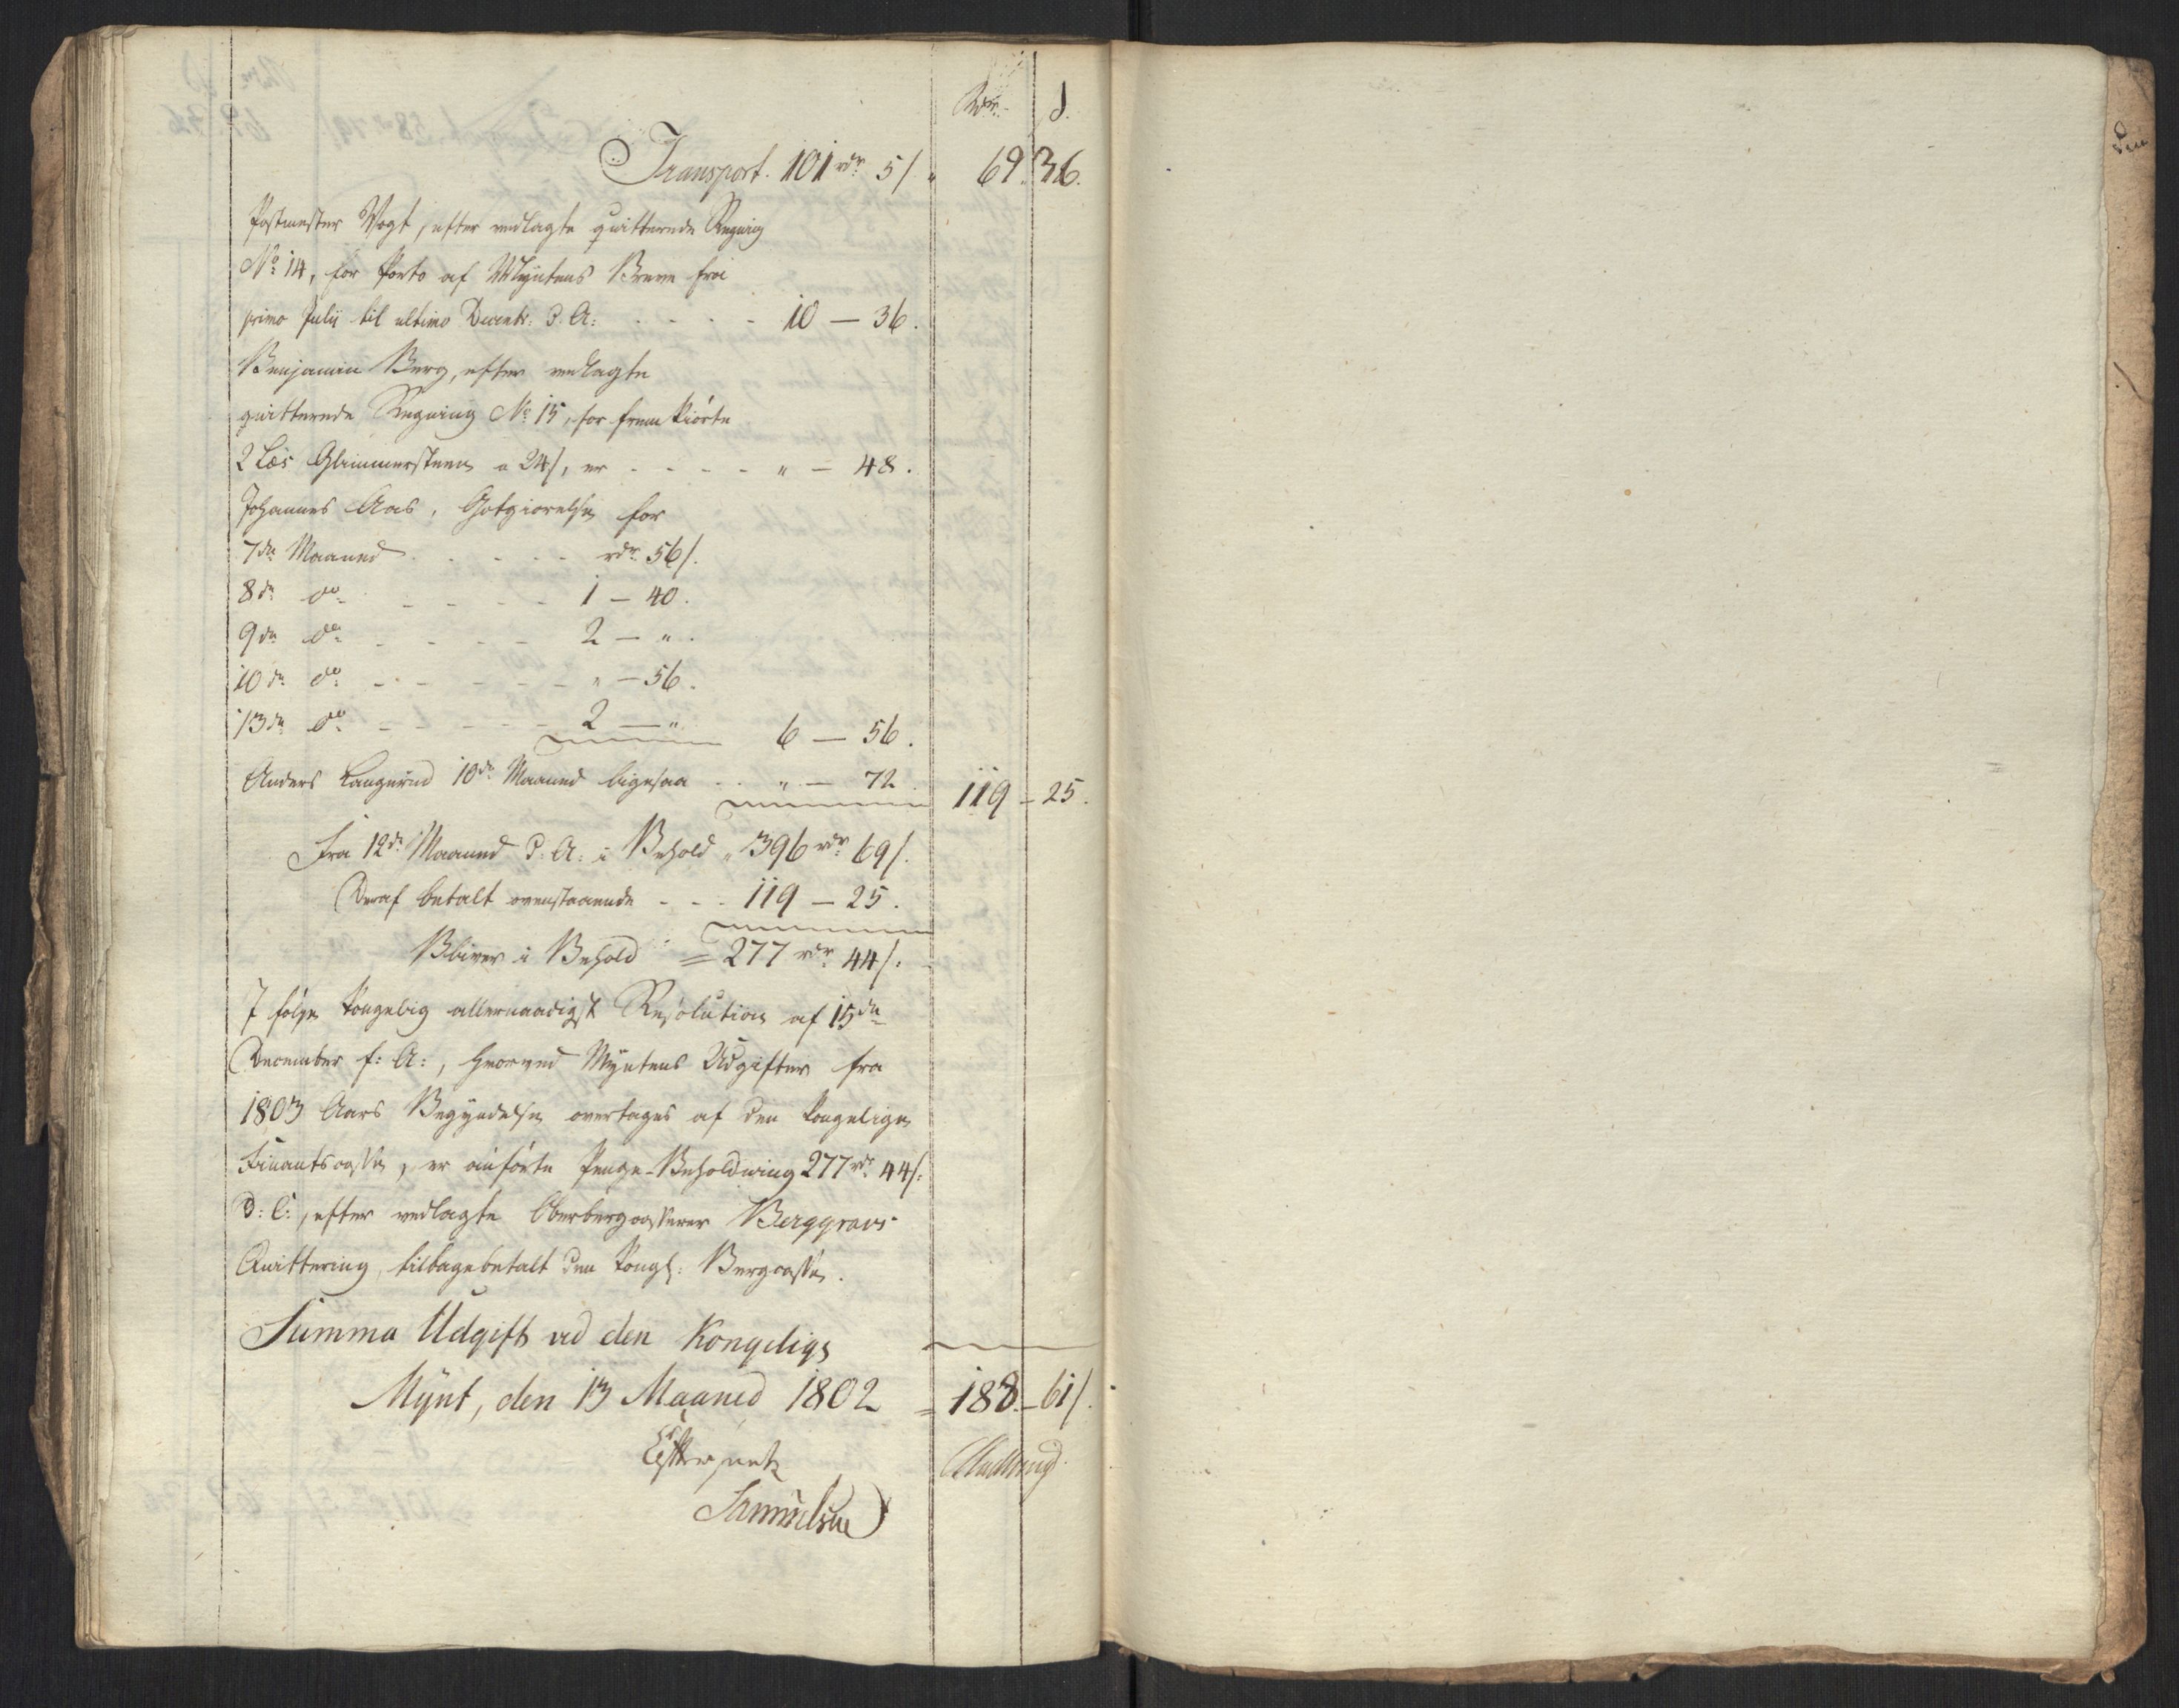 Rdr. s.
Transport. 101 rdr 5 s. 69. 36.
Postmester Vogt, efter vedlagte quitterede Regning
No 14, for Porto af Myntens Breve fra
primo Julii til ultimo Decemb: d. A: - - - - 10 — 36.
Benjamin Berg, efter vedlagte
quitterede Regning No 15, for fremkiørte
2 Læs Glimmersteen a 24 s, er - - - - " — 48.
Johannes Aas, Gotgiørelse for
7de Maaned - - - - rdr 56 s.
8de do - - - - 1 — 40.
9de do - - - - 2 — ".
10de do - - - - " — 56.
13de do - - - - 2 — " 6 — 56.
Anders Langerud 10de Maaned ligesaa - - " — 72. 119 — 25.
Fra 12te Maaned d: A: i Behold " 396 rdr 69 s.
Deraf betalt ovenstaaende - - - 119 — 25.
Bliver i Behold = 277 rdr 44 s.
I følge kongelig allernaadigst Resolution af 15de
December f: A:, hvorved Myntens Udgifter fra
1803 Aars Begyndelse overtages af den kongelige
Finantscasse, er anførte Penge-Beholdning 277 rdr 44 s:
D: C:, efter vedlagte Oberbergcasserer Berggravs
Quittering, tilbagebetalt den Kongl: Bergcasse.
Summa Udgift ved den Kongelige
Mynt, den 13 Maaned 1802 = 188. — 61 s.
Samuelsen